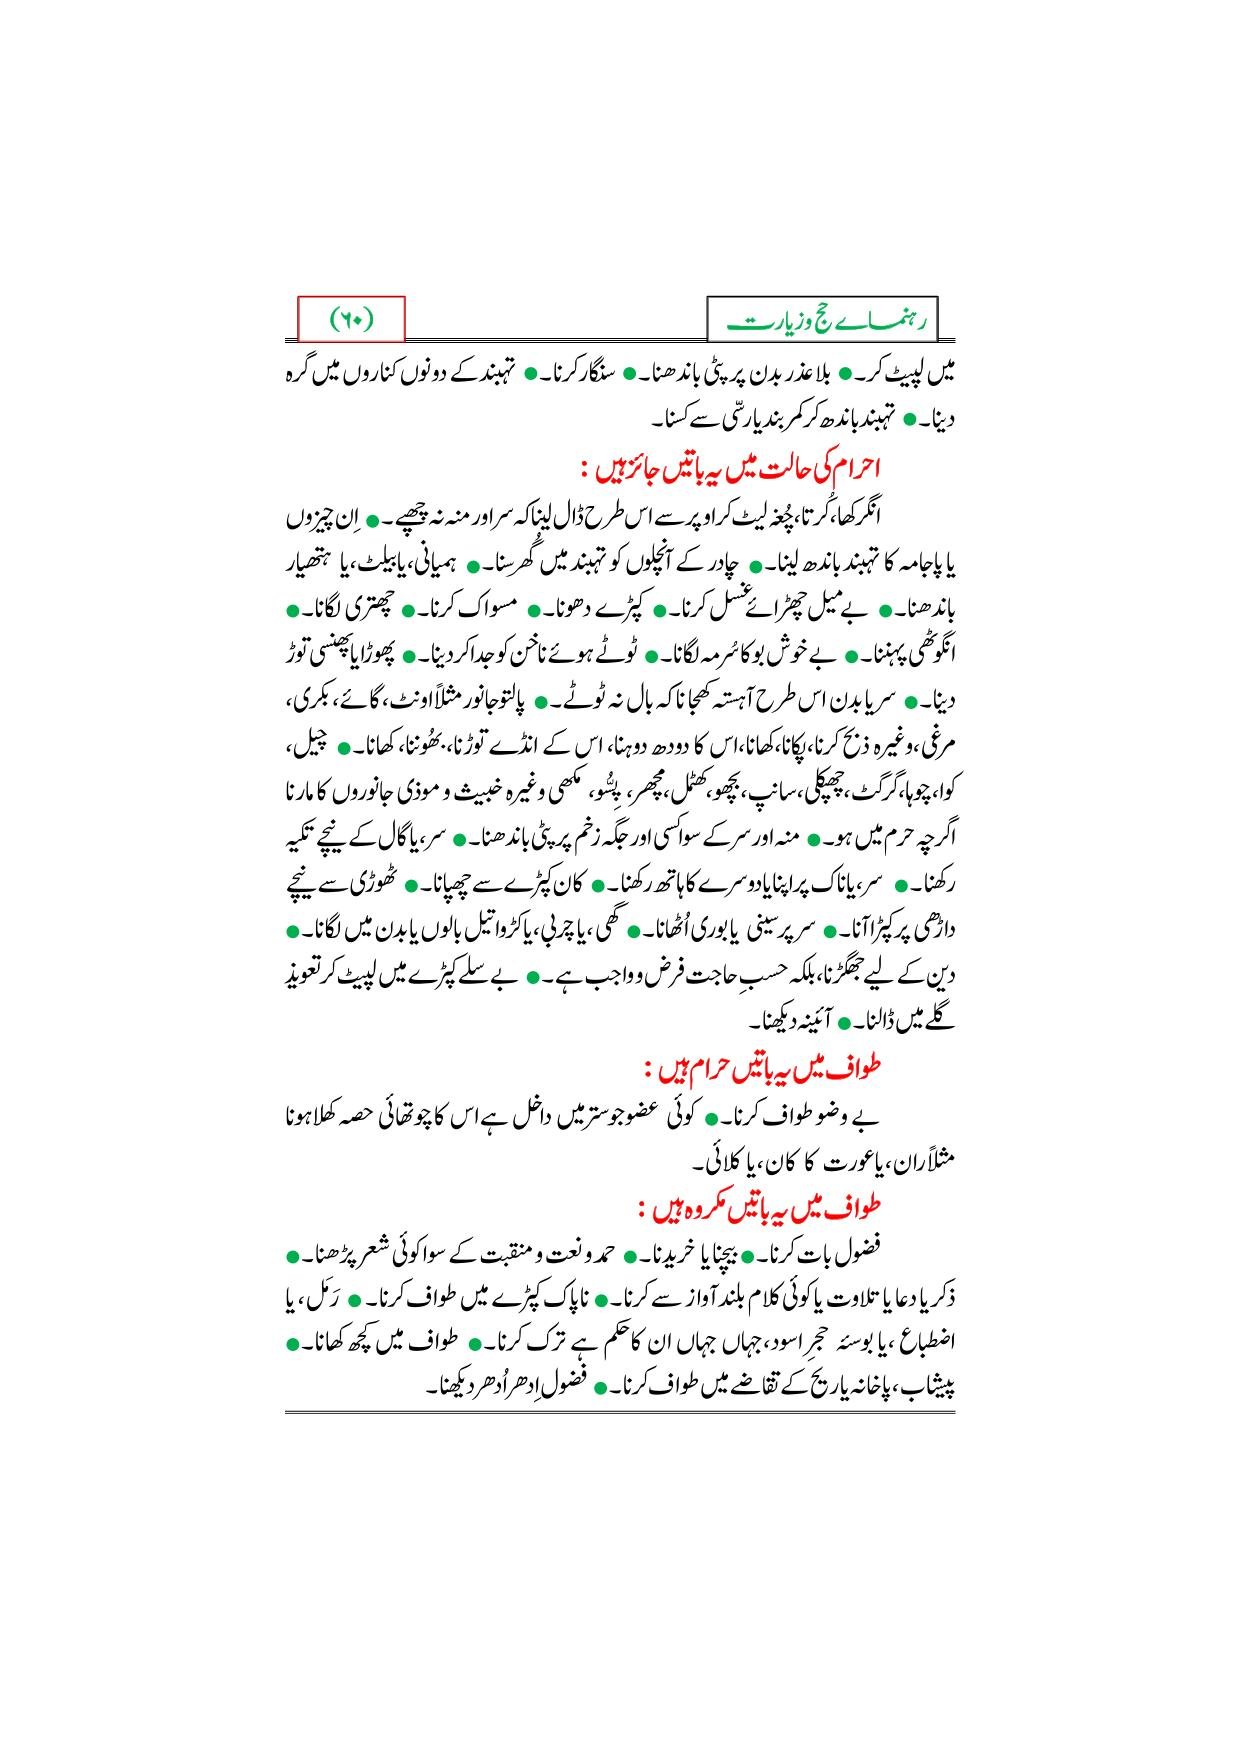 رہنماے حج و زیارت
(۶۰)
میں لپیٹ کر۔● بلا عذر بدن پر پٹی باندھنا۔● سنگار کرنا۔● تہبند کے دونوں کناروں میں گرہ
دینا۔● تہبند باندھ کر کمر بند یا رسّی سے کسنا۔
احرام کی حالت میں یہ باتیں جائز ہیں :
انگرکھا،کُرتا،چُغہ لیٹ کر اوپر سے اس طرح ڈال لینا کہ سر اور منہ نہ چھپے۔● اِن چیزوں
یا پاجامہ کا تہبند باندھ لینا۔● چادر کے آنچلوں کو تہبند میں گُھرسنا۔● ہمیانی،یا بیلٹ،یا ہتھیار
باندھنا۔● بے میل چھڑائے غسل کرنا۔● کپڑے دھونا۔● مسواک کرنا۔● چھتری لگانا۔●
انگوٹھی پہننا۔● بے خوش بو کا سُرمہ لگانا۔● ٹوٹے ہوئے ناخن کو جدا کر دینا۔● پھوڑا یا پھنسی توڑ
دینا۔● سر یا بدن اس طرح آہستہ کھجانا کہ بال نہ ٹوٹے۔● پالتو جانور مثلاً اونٹ، گائے، بکری،
مرغی،وغیرہ ذبح کرنا،پکانا،کھانا،اس کا دودھ دوہنا، اس کے انڈے توڑنا،بھُوننا، کھانا۔● چیل،
کوا، چوہا،گرگٹ، چھپکلی،سانپ، بچھو،کھٹمل،مچھر، پِسُّو، مکھی وغیرہ خبیث و موذی جانوروں کا مارنا
اگرچہ حرم میں ہو۔● منہ اور سر کے سوا کسی اور جگہ زخم پر پٹی باندھنا۔● سر،یا گال کے نیچے تکیہ
رکھنا۔● سر،یا ناک پر اپنا یا دوسرے کا ہاتھ رکھنا۔● کان کپڑے سے چھپانا۔● ٹھوڑی سے نیچے
داڑھی پر کپڑا آنا۔● سر پر سینی یا بوری اُٹھانا۔● گھی، یا چربی،یا کڑوا تیل بالوں یا بدن میں لگانا۔●
دین کے لیے جھگڑنا،بلکہ حسبِ حاجت فرض و واجب ہے۔● بے سلے کپڑے میں لپیٹ کر تعویذ
گلے میں ڈالنا۔● آئینہ دیکھنا۔
طواف میں یہ باتیں حرام ہیں :
بے وضو طواف کرنا۔● کوئی عضو جو ستر میں داخل ہے اس کا چوتھائی حصہ کھلا ہونا
مثلاً ران،یا عورت کا کان، یا کلائی۔
طواف میں یہ باتیں مکروہ ہیں :
فضول بات کرنا۔● بیچنا یا خریدنا۔● حمد و نعت و منقبت کے سوا کوئی شعر پڑھنا۔●
ذکر یا دعا یا تلاوت یا کوئی کلام بلند آواز سے کرنا۔● ناپاک کپڑے میں طواف کرنا۔● رَمَل، یا
اضطباع ،یا بوسۂ حجرِ اسود،جہاں جہاں ان کا حکم ہے ترک کرنا۔● طواف میں کچھ کھانا۔●
پیشاب، پاخانہ یا ریح کے تقاضے میں طواف کرنا۔● فضول اِدھر اُدھر دیکھنا۔